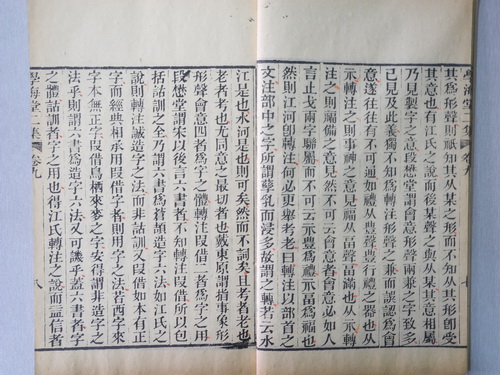 學海堂二集 卷九 七
其爲形聲則祗知其从某之形而不知从其形卽受
其意也有江氏之說而後某聲之與从某其意相屬
乃見製字之意段懋堂謂會意形聲兩兼之字致多
己見及此義獨不知其爲轉注形聲之兼而誤認爲會
意遂往往有不可通如禮从豊聲豊行禮之器也从
示轉注之則事神之意見福从畐聲畐滿也从示轉
注之則福備之意見然而非會意也會意如人
言止戈兩字聯屬而不可云示豊爲禮示畐爲福也
然則江河卽轉注何必更舉考老曰轉注以部首之
文注部中之字所謂孳乳而浸多故謂之轉若云水
江是也水河是也則可矣然而不詞矣且考者老也
老者考也尤同意之最切者也戴東原謂指事象形
形聲會意四者爲字之體轉注叚借二者爲字之用
段懋堂謂宋以後言六書者不知轉注叚借所以包
括詁訓之全乃謂六書爲蒼頡造字六法如江氏之
說則轉注誠造字之法而非詁訓又叚借如本有正
字而經典相承用叚借字者則用字之法若西字來
字本無正字叚借鳥栖來麥之字安得謂非造字之
法乎則謂六書爲造字六法又可譏乎蓋六書者字
之體詁訓者字之用也得江氏轉注之說而益信者
學海堂二集 卷九 八